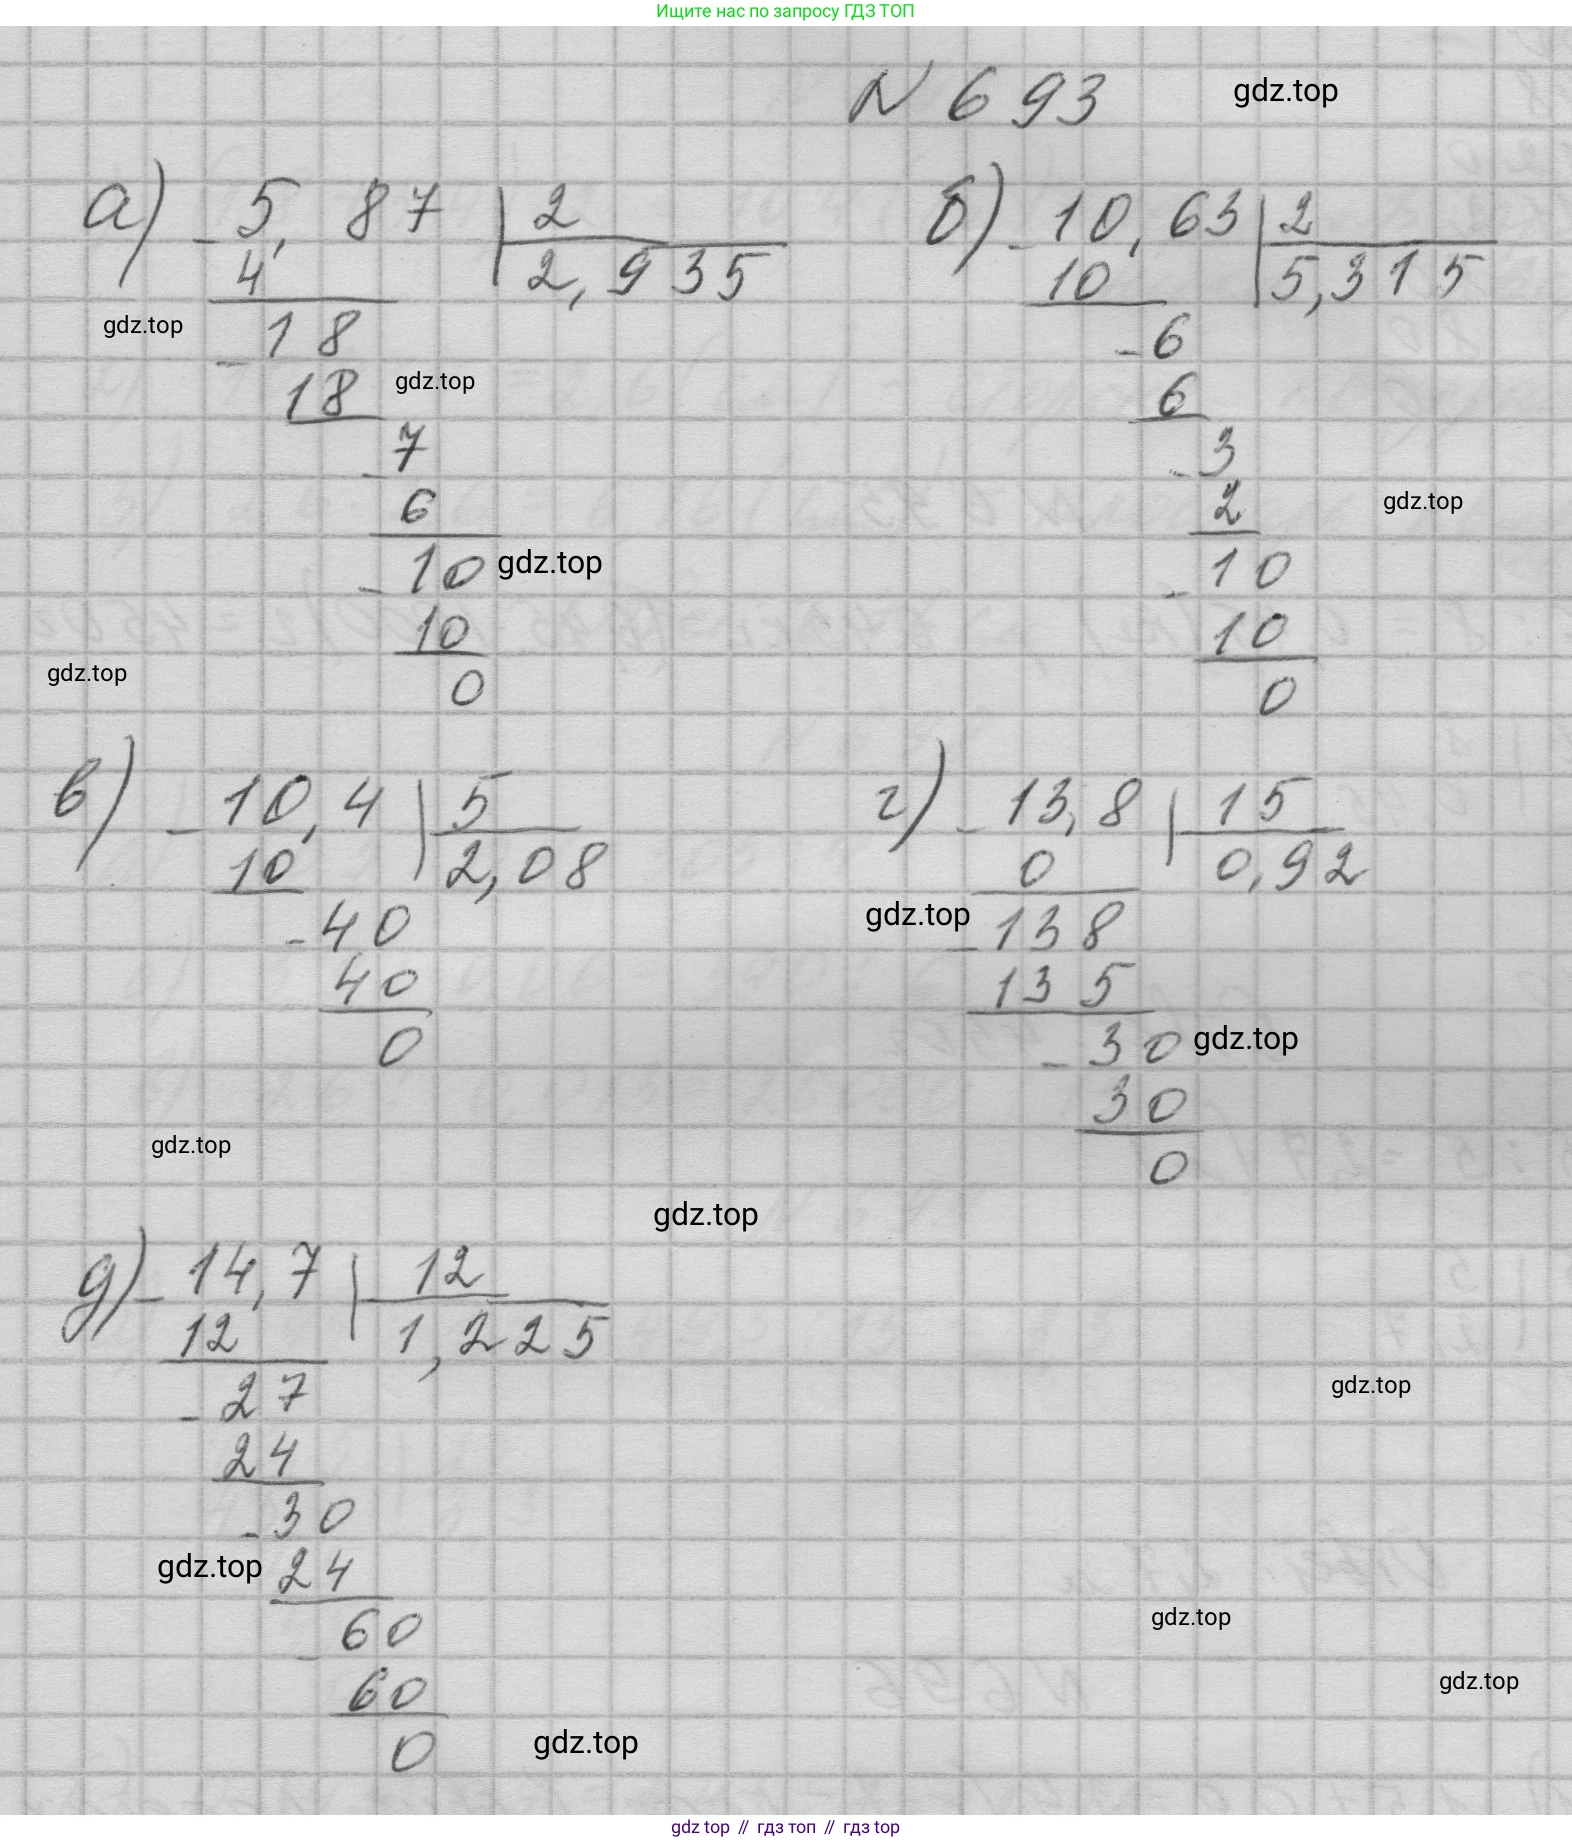 Ищите нас по запросу ГДЗ ТОП
N 693
gdz.top
а) - 5,87 | 2
4 2,935
gdz.top
- 18
18
gdz.top
- 7
6
- 10
gdz.top
10
gdz.top
0
б) - 10,63 | 2
10 5,315
- 6
6
- 3
2
gdz.top
- 10
10
0
в) - 10,4 | 5
10 2,08
- 40
40
0
gdz.top
г) - 13,8 | 15
0 0,92
gdz.top
- 138
135
- 30
gdz.top
30
0
gdz.top
д) - 14,7 | 12
12 1,225
- 27
24
- 30
gdz.top
24
- 60
60
0
gdz.top
gdz.top
gdz.top
gdz.top
gdz top // гдз топ // гдз top